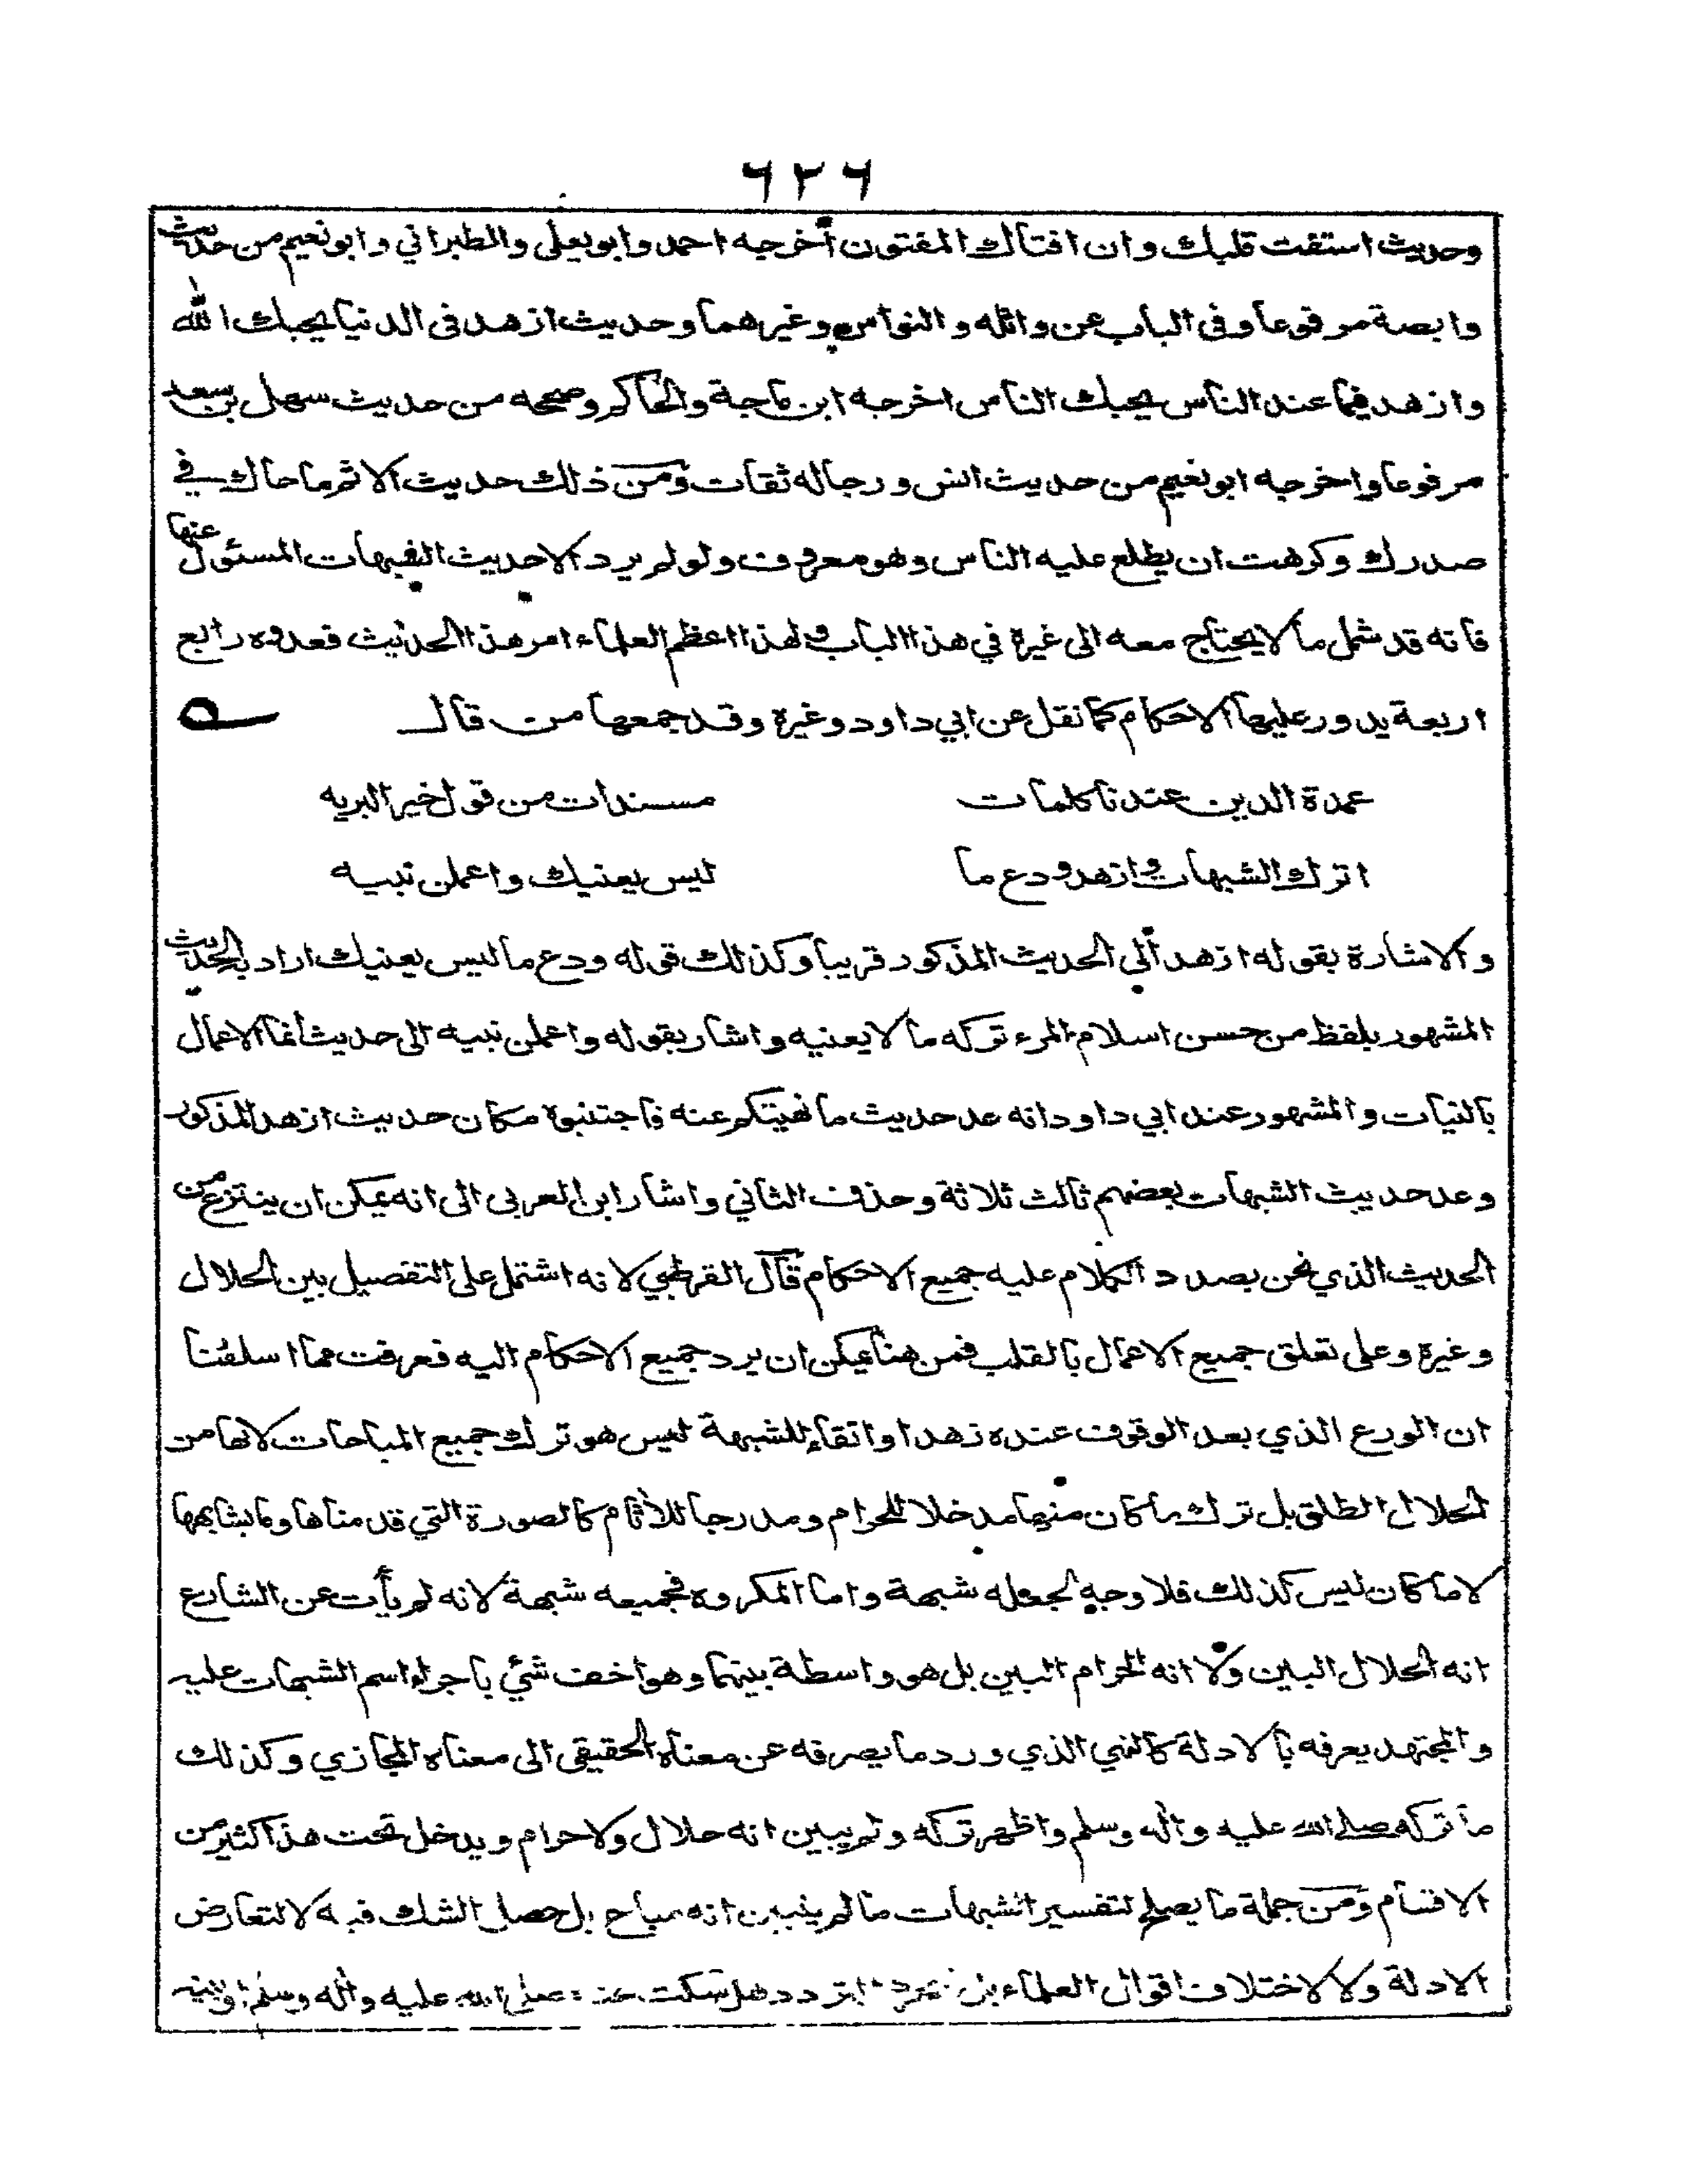 ٦٢٦
وحديث استفت قلبك وان افتاك المفتون أخرجه احمد وابو يعلى والطبراني وابو نعيم من حديث
وابصة مرفوعا وفى الباب عن واثله والنواس وغيرهما وحديث ازهد فى الدنيا يحبك الله
وازهد فيما عند الناس يحبك الناس اخرجه ابن ماجة والحاكم وصححه من حديث سهل بن سعد
مرفوعا واخرجه ابو نعيم من حديث انس ورجاله ثقات ومن ذلك حديث الاثم ما حاك في
صدرك وكرهت ان يطلع عليه الناس وهو معروف ولو لم يرد الا حديث الشبهات المسئول عنها
فانه قد شمل ما لا يحتاج معه الى غيرة في هذا الباب ولهذا اعظم العلماء امر هذا الحديث فعدوه رابع
اربعة يدور عليها الاحكام كما نقل عن ابي داود وغيرة وقد جمعها من قال
عمدة الدين عندنا كلمات مسندات من قول خير البريه
اترك الشبهات وازهد ودع ما ليس يعنيك واعملن نبيه
والاشارة بقوله ازهد ألى الحديث المذكور قريبا وكذلك قوله ودع ما ليس يعنيك اراد بالحديث
المشهور بلفظ من حسن اسلام المرء تركه ما لا يعنيه واشار بقوله واعملن نبيه الى حديث أنما الاعمال
بالنيات والمشهور عند ابي داود انه عد حديث ما نهيتكم عنه فاجتنبوة مكان حديث ازهد المذكور
وعد حديث الشبهات بعضهم ثالث ثلاثة وحذف الثاني واشار ابن العربى الى انه يمكن ان ينتزع من
الحديث الذي نحن بصدد الكلام عليه جميع الاحكام قال القرطبي لانه اشتمل على التفصيل بين الحلال
وغيرة وعلى تعلق جميع الاعمال بالقلب فمن هنا يمكن ان يرد جميع الاحكام اليه فعرفت مما اسلفنا
ان الورع الذي بعد الوقوف عنده زهدا واتقاء للشبهة ليس هو ترك جميع المباحات لانها من
الحلال الطلق بل ترك ما كان منها مدخلا للحرام ومدرجا للأثام كالصورة التي قدمناها وما يشابهها
لا ما كان ليس كذلك فلا وجه لجعله شبهة واما المكروه فجميعه شبهة لانه لم يأت عن الشارع
انه الحلال البين ولا انه الحرام البين بل هو واسطة بينهما وهو اخف شئ باجراء اسم الشبهات عليه
والمجتهد يعرفه بالادلة كالنهي الذي ورد ما يصرفه عن معناه الحقيقى الى معناه المجازي وكذلك
ما تركه صلى الله عليه وآله وسلم واظهر تركه ولم يبين انه حلال ولا حرام ويدخل تحت هذا كثير من
الاقسام ومن جملة ما يصلح لتفسير الشبهات ما لم يتبين انه مباح بل حصل الشك فيه لا لتعارض
الادلة ولا لاختلاف اقوال العلماء بل تردد هل سكت عنه صلى الله عليه وآله وسلم